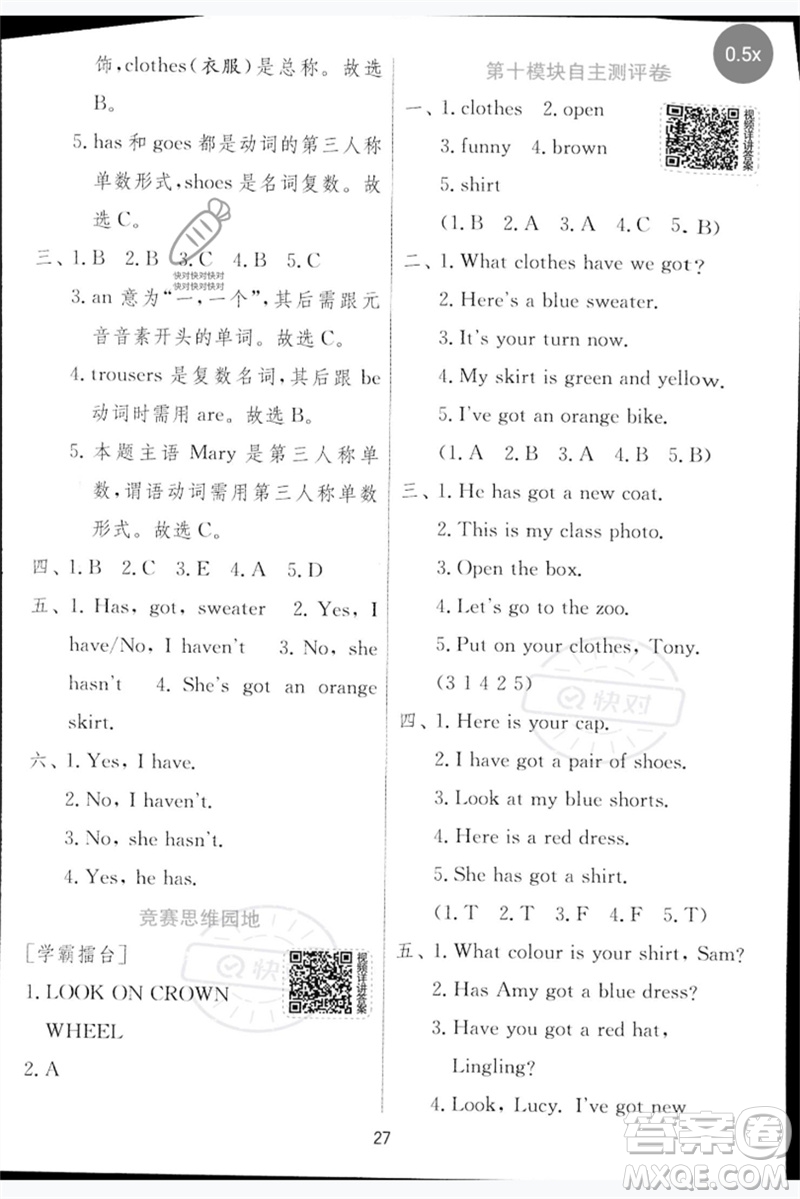 饰,clothes(衣服)是总称。故选
B。
5. has 和 goes 都是动词的第三人称
单数形式,shoes 是名词复数。故
选 C。
三、1. B 2. B 3. C 4. B 5. C
快对快对快对
快对快对快对
3. an 意为“一,一个”,其后需跟元
音音素开头的单词。故选 C。
4. trousers 是复数名词,其后跟 be
动词时需用 are。故选 B。
5. 本题主语 Mary 是第三人称单
数,谓语动词需用第三人称单数
形式。故选 C。
四、1. B 2. C 3. E 4. A 5. D
五、1. Has, got, sweater 2. Yes, I
have/No, I haven't 3. No, she
hasn't 4. She's got an orange
skirt.
六、1. Yes, I have.
2. No, I haven't.
3. No, she hasn't.
4. Yes, he has.
竞赛思维园地
[学霸擂台]
视频详讲答案
1. LOOK ON CROWN
WHEEL
2. A
快对
0.5x
第十模块自主测评卷
一、1. clothes 2. open
3. funny 4. brown
5. shirt
视频详讲答案
(1. B 2. A 3. A 4. C 5. B)
二、1. What clothes have we got?
2. Here's a blue sweater.
3. It's your turn now.
4. My skirt is green and yellow.
5. I've got an orange bike.
(1. A 2. B 3. A 4. B 5. B)
三、1. He has got a new coat.
2. This is my class photo.
3. Open the box.
4. Let's go to the zoo.
5. Put on your clothes, Tony.
(3 1 4 2 5)
快对
四、1. Here is your cap.
2. I have got a pair of shoes.
3. Look at my blue shorts.
4. Here is a red dress.
5. She has got a shirt.
(1. T 2. T 3. F 4. F 5. T)
五、1. What colour is your shirt, Sam?
2. Has Amy got a blue dress?
3. Have you got a red hat,
Lingling?
4. Look, Lucy. I've got new
27
答案圈
MXQE.COM